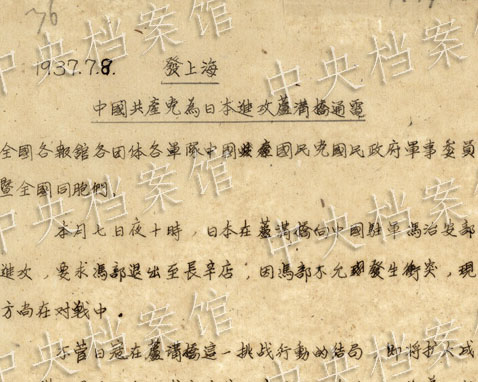 76
1937.7.8. 發上海
中國共產党為日本進攻蘆溝橋通電
全國各報舘各団体各軍隊中国國民党國民政府軍事委員
暨全國同胞們.
本月七日夜十時,日本在蘆溝橋向中國駐軍馮治安部
進攻,要求馮部退出至長辛店,因馮部不允發生衝突,現
方尚在対戦中.
不管日寇在蘆溝橋這一挑战行動的結局 即將扩大成
中央档案馆